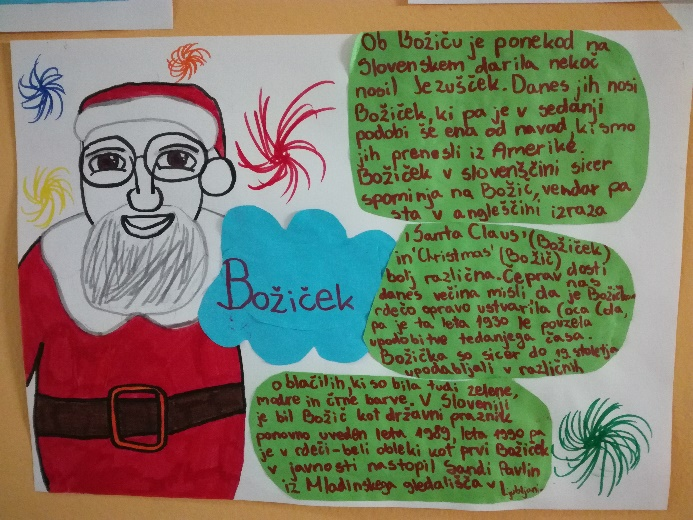 Božiček
Ob Božiču je ponekod na
Slovenskem darila nekoč
nosil Jezušček. Danes jih nosi
Božiček, ki pa je v sedanji
podobi še ena od navad, ki smo
jih prenesli iz Amerike.
Božiček v slovenščini sicer
spominja na Božič, vendar pa
sta v angleščini izraza
'Santa Claus' (Božiček)
in 'Christmas' (Božič)
bolj različna. Čeprav dosti
danes večina misli, da je Božičku nas
rdečo opravo ustvarila Coca Cola,
pa je ta leta 1930 le povzela
upodobitve tedanjega časa.
Božička so sicer do 19. stoletja
upodabljali v različnih
oblačilih, ki so bila tudi zelene,
modre in črne barve. V Sloveniji
je bil Božič kot državni praznik
ponovno uveden leta 1989, leta 1990 pa
je v rdeči-beli obleki kot prvi Božiček
v javnosti nastopil Sandi Pavlin
iz Mladinskega gledališča v Ljubljani.